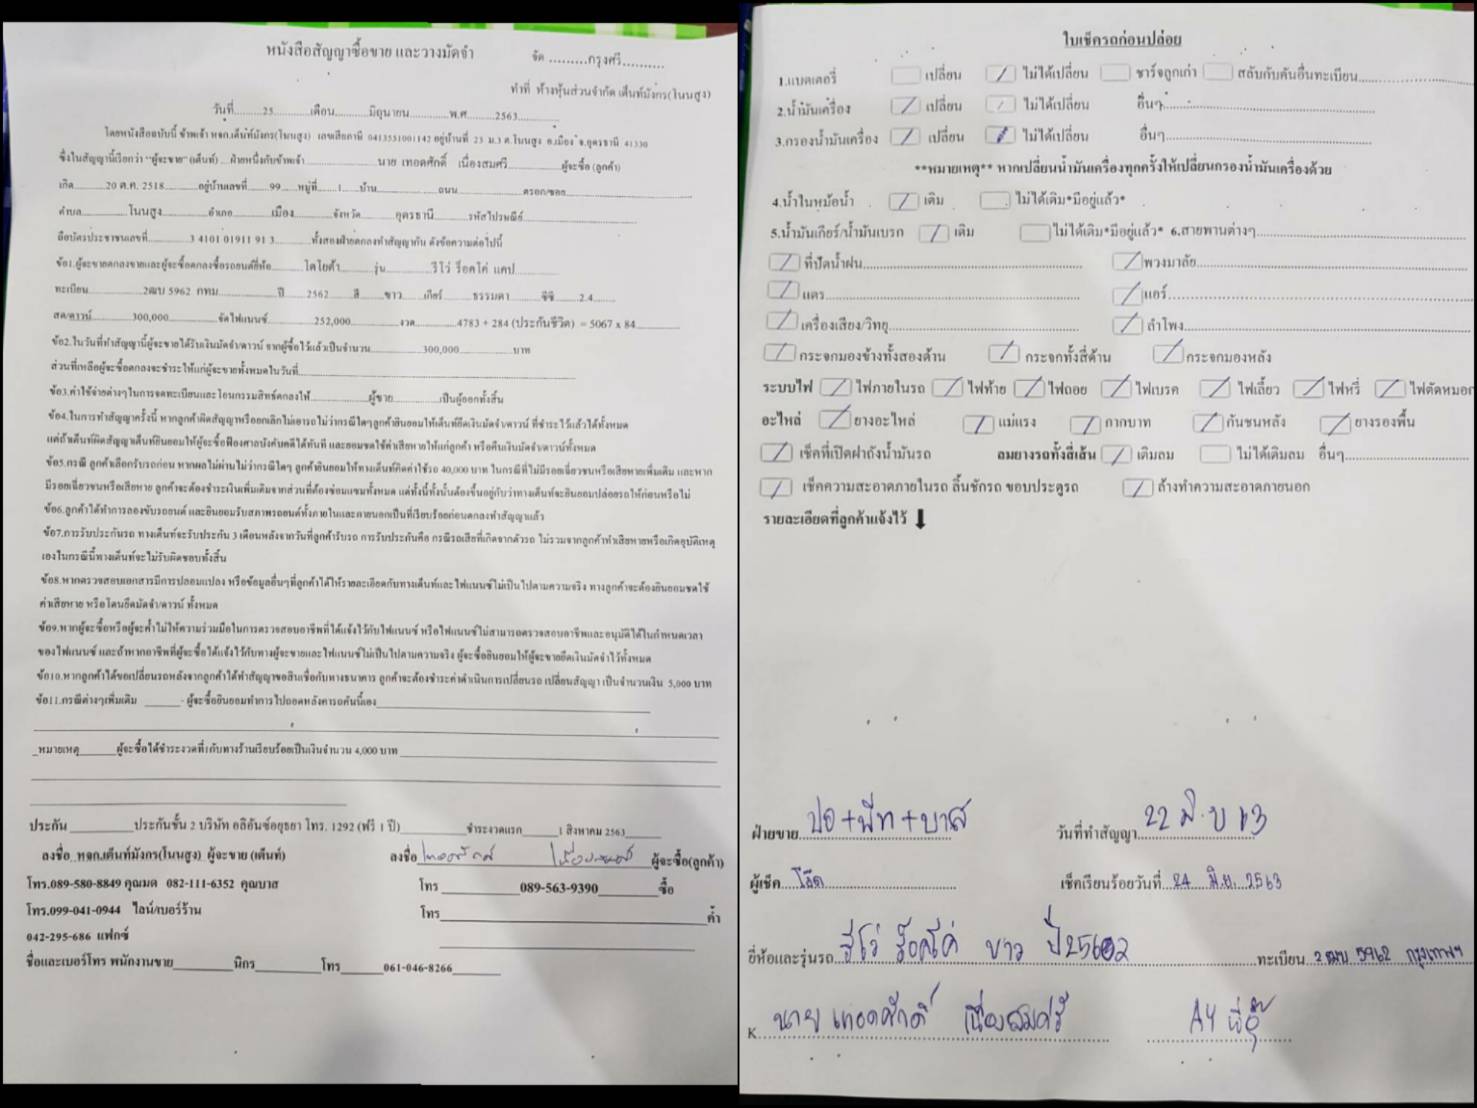 หนังสือสัญญาซื้อขาย และวางมัดจำ
จัด .........กรุงศรี..........
ทำที่ ห้างหุ้นส่วนจำกัด เต็นท์มังกร(โนนสูง)
วันที่.........25...........เดือน..........มิถุนายน............พ.ศ..........2563..........
โดยหนังสือฉบับนี้ ข้าพเจ้า หจก.เต็นท์มังกร(โนนสูง) เลขเสียภาษี 0413551001142 อยู่บ้านที่ 23 ม.3 ต.โนนสูง อ.เมือง จ.อุดรธานี 41330
ซึ่งในสัญญานี้เรียกว่า "ผู้จะขาย" (เต็นท์) ... ฝ่ายหนึ่งกับข้าพเจ้า......................นาย เทอดศักดิ์ เนื่องสมศรี..................ผู้จะซื้อ (ลูกค้า)
เกิด.........20 ต.ค. 2518............อยู่บ้านเลขที่.......99......หมู่ที่......1......บ้าน....................ถนน.....................ตรอก/ซอย
ตำบล.............โนนสูง.............อำเภอ...........เมือง...........จังหวัด...........อุดรธานี...........รหัสไปรษณีย์
ถือบัตรประชาชนเลขที่.............3 4101 01911 91 3...........ทั้งสองฝ่ายตกลงทำสัญญากัน ดังข้อความต่อไปนี้
ข้อ1.ผู้จะขายตกลงขายและผู้จะซื้อตกลงซื้อรถยนต์ยี่ห้อ...........โตโยต้า...........รุ่น...............รีโว่ ร็อคโค่ แคป
ทะเบียน..................2ฒบ 5962 กทม...................ปี........2562........สี........ขาว........เกียร์..........ธรรมดา..........ซีซี........2.4
สด/ดาวน์...............300,000...............จัดไฟแนนซ์...............252,000...............งวด...............4783 + 284 (ประกันชีวิต) = 5067 x 84
ข้อ2.ในวันที่ทำสัญญานี้ผู้จะขายได้รับเงินมัดจำ/ดาวน์ จากผู้ซื้อไว้แล้วเป็นจำนวน....................300,000....................บาท
ส่วนที่เหลือผู้จะซื้อตกลงจะชำระให้แก่ผู้จะขายทั้งหมดในวันที่
ข้อ3.ค่าใช้จ่ายต่างๆในการจดทะเบียนและโอนกรรมสิทธิ์ตกลงให้....................ผู้ขาย..................เป็นผู้ออกทั้งสิ้น
ข้อ4.ในการทำสัญญาครั้งนี้ หากลูกค้าผิดสัญญาหรือยกเลิกไม่เอารถไม่ว่ากรณีใดๆลูกค้ายินยอมให้เต็นท์ยึดเงินมัดจำ/ดาวน์ ที่ชำระไว้แล้วได้ทั้งหมด
แต่ถ้าเต็นท์ผิดสัญญาเต็นท์ยินยอมให้ผู้จะซื้อฟ้องศาลบังคับคดีได้ทันที และยอมชดใช้ค่าเสียหายให้แก่ลูกค้า หรือคืนเงินมัดจำ/ดาวน์ทั้งหมด
ข้อ5.กรณี ลูกค้าเลือกรับรถก่อน หากผลไม่ผ่านไม่ว่ากรณีใดๆ ลูกค้ายินยอมให้ทางเต็นท์คิดค่าใช้รถ 40,000 บาท ในกรณีที่ไม่มีรอยเฉี่ยวชนหรือเสียหายเพิ่มเติม และหาก
มีรอยเฉี่ยวชนหรือเสียหาย ลูกค้าจะต้องชำระเงินเพิ่มเติมจากส่วนที่ต้องซ่อมแซมทั้งหมด แต่ทั้งนี้ทั้งนั้นต้องขึ้นอยู่กับว่าทางเต็นท์จะยินยอมปล่อยรถให้ก่อนหรือไม่
ข้อ6.ลูกค้าได้ทำการลองขับรถยนต์ และยินยอมรับสภาพรถยนต์ทั้งภายในและภายนอกเป็นที่เรียบร้อยก่อนตกลงทำสัญญาแล้ว
ข้อ7.การรับประกันรถ ทางเต็นท์จะรับประกัน 3 เดือนหลังจากวันที่ลูกค้ารับรถ การรับประกันคือ กรณีรถเสียที่เกิดจากตัวรถ ไม่รวมจากลูกค้าทำเสียหายหรือเกิดอุบัติเหตุ
เองในกรณีนี้ทางเต็นท์จะไม่รับผิดชอบทั้งสิ้น
ข้อ8.หากตรวจสอบเอกสารมีการปลอมแปลง หรือข้อมูลอื่นๆที่ลูกค้าได้ให้รายละเอียดกับทางเต็นท์และไฟแนนซ์ไม่เป็นไปตามความจริง ทางลูกค้าจะต้องยินยอมชดใช้
ค่าเสียหาย หรือโดนยึดมัดจำ/ดาวน์ ทั้งหมด
ข้อ9.หากผู้จะซื้อหรือผู้จะค้ำไม่ให้ความร่วมมือในการตรวจสอบอาชีพที่ได้แจ้งไว้กับไฟแนนซ์ หรือไฟแนนซ์ไม่สามารถตรวจสอบอาชีพและอนุมัติได้ในกำหนดเวลา
ของไฟแนนซ์ และถ้าหากอาชีพที่ผู้จะซื้อได้แจ้งไว้กับทางผู้จะขายและไฟแนนซ์ไม่เป็นไปตามความจริง ผู้จะซื้อยินยอมให้ผู้จะขายยึดเงินมัดจำไว้ทั้งหมด
ข้อ10.หากลูกค้าได้ขอเปลี่ยนรถหลังจากลูกค้าได้ทำสัญญาขอสินเชื่อกับทางธนาคาร ลูกค้าจะต้องชำระค่าดำเนินการเปลี่ยนรถ เปลี่ยนสัญญา เป็นจำนวนเงิน 5,000 บาท
ข้อ11.กรณีต่างๆเพิ่มเติม ______- ผู้จะซื้อยินยอมทำการไปถอดหลังคารถคันนี้เอง
_หมายเหตุ______ผู้จะซื้อได้ชำระงวดที่1กับทางร้านเรียบร้อยเป็นเงินจำนวน 4,000 บาท
ประกัน _________ประกันชั้น 2 บริษัท อลิอันซ์อยุธยา โทร. 1292 (ฟรี 1 ปี)_________ชำระงวดแรก_____1 สิงหาคม 2563
ลงชื่อ..หจก.เต็นท์มังกร(โนนสูง) ผู้จะขาย (เต็นท์)
ลงชื่อ เทอดศักดิ์ เนื่องสมศรี ผู้จะซื้อ(ลูกค้า)
โทร.089-580-8849 คุณมด 082-111-6352 คุณบาส
โทร _________089-563-9390_______ซื้อ
โทร.099-041-0944 ไลน์/เบอร์ร้าน
โทร______________________ค้ำ
042-295-686 แฟกซ์
ชื่อและเบอร์โทร พนักงานขาย_________นิกร_________โทร______061-046-8266
ใบเช็ครถก่อนปล่อย
1.แบตเตอรี่ เปลี่ยน / ไม่ได้เปลี่ยน ชาร์จลูกเก่า สลับกับคันอื่นทะเบียน
2.น้ำมันเครื่อง / เปลี่ยน / ไม่ได้เปลี่ยน อื่นๆ
3.กรองน้ำมันเครื่อง / เปลี่ยน / ไม่ได้เปลี่ยน อื่นๆ
**หมายเหตุ** หากเปลี่ยนน้ำมันเครื่องทุกครั้งให้เปลี่ยนกรองน้ำมันเครื่องด้วย
4.น้ำในหม้อน้ำ / เติม ไม่ได้เติม*มีอยู่แล้ว*
5.น้ำมันเกียร์/น้ำมันเบรก / เติม ไม่ได้เติม*มีอยู่แล้ว* 6.สายพานต่างๆ
/ ที่ปัดน้ำฝน / พวงมาลัย
/ แตร / แอร์
/ เครื่องเสียง/วิทยุ / ลำโพง
/ กระจกมองข้างทั้งสองด้าน / กระจกทั้งสี่ด้าน / กระจกมองหลัง
ระบบไฟ / ไฟภายในรถ / ไฟท้าย / ไฟถอย / ไฟเบรค / ไฟเลี้ยว / ไฟหรี่ / ไฟตัดหมอก
อะไหล่ / ยางอะไหล่ / แม่แรง / กากบาท / กันชนหลัง / ยางรองพื้น
/ เช็คที่เปิดฝาถังน้ำมันรถ ลมยางรถทั้งสี่เส้น / เติมลม ไม่ได้เติมลม อื่นๆ
/ เช็คความสะอาดภายในรถ ลิ้นชักรถ ขอบประตูรถ / ล้างทำความสะอาดภายนอก
รายละเอียดที่ลูกค้าแจ้งไว้ ⬇
ฝ่ายขาย ปอ+พีท+บาส วันที่ทำสัญญา 22 มิ.ย 63
ผู้เช็ค เช็คเรียบร้อยวันที่ 24 มิ.ย. 2563
ยี่ห้อและรุ่นรถ รีโว่ ร็อคโค่ ขาว ปี 2562 ทะเบียน 2ฒบ 5962 กรุงเทพฯ
K. นาย เทอดศักดิ์ เนื่องสมศรี AY